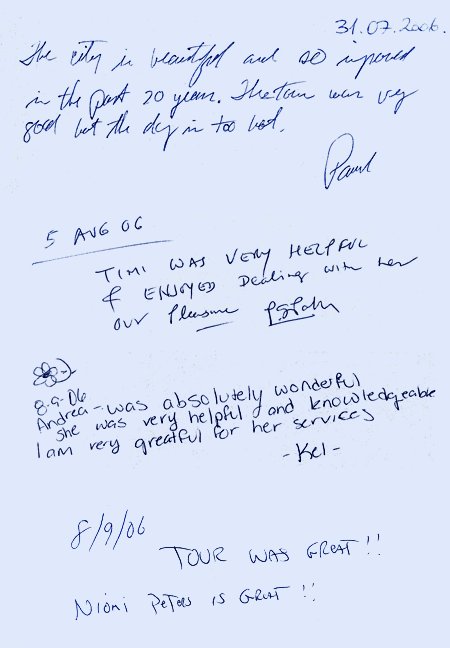 31.07.2006.
The city is beautiful and so inpored
in the past 20 years. The tour was very
good but the day in too hot.
Paul
5 AUG 06
TIMI WAS VERY HELPFUL
& ENJOYED Dealing with her
our Pleasure
8-9-06
Andrea - was absolutely wonderful
she was very helpful and knowledgeable
I am very greatful for her services
- Kel -
8/9/06
TOUR WAS GREAT!!
Nioni Peters IS GREAT!!